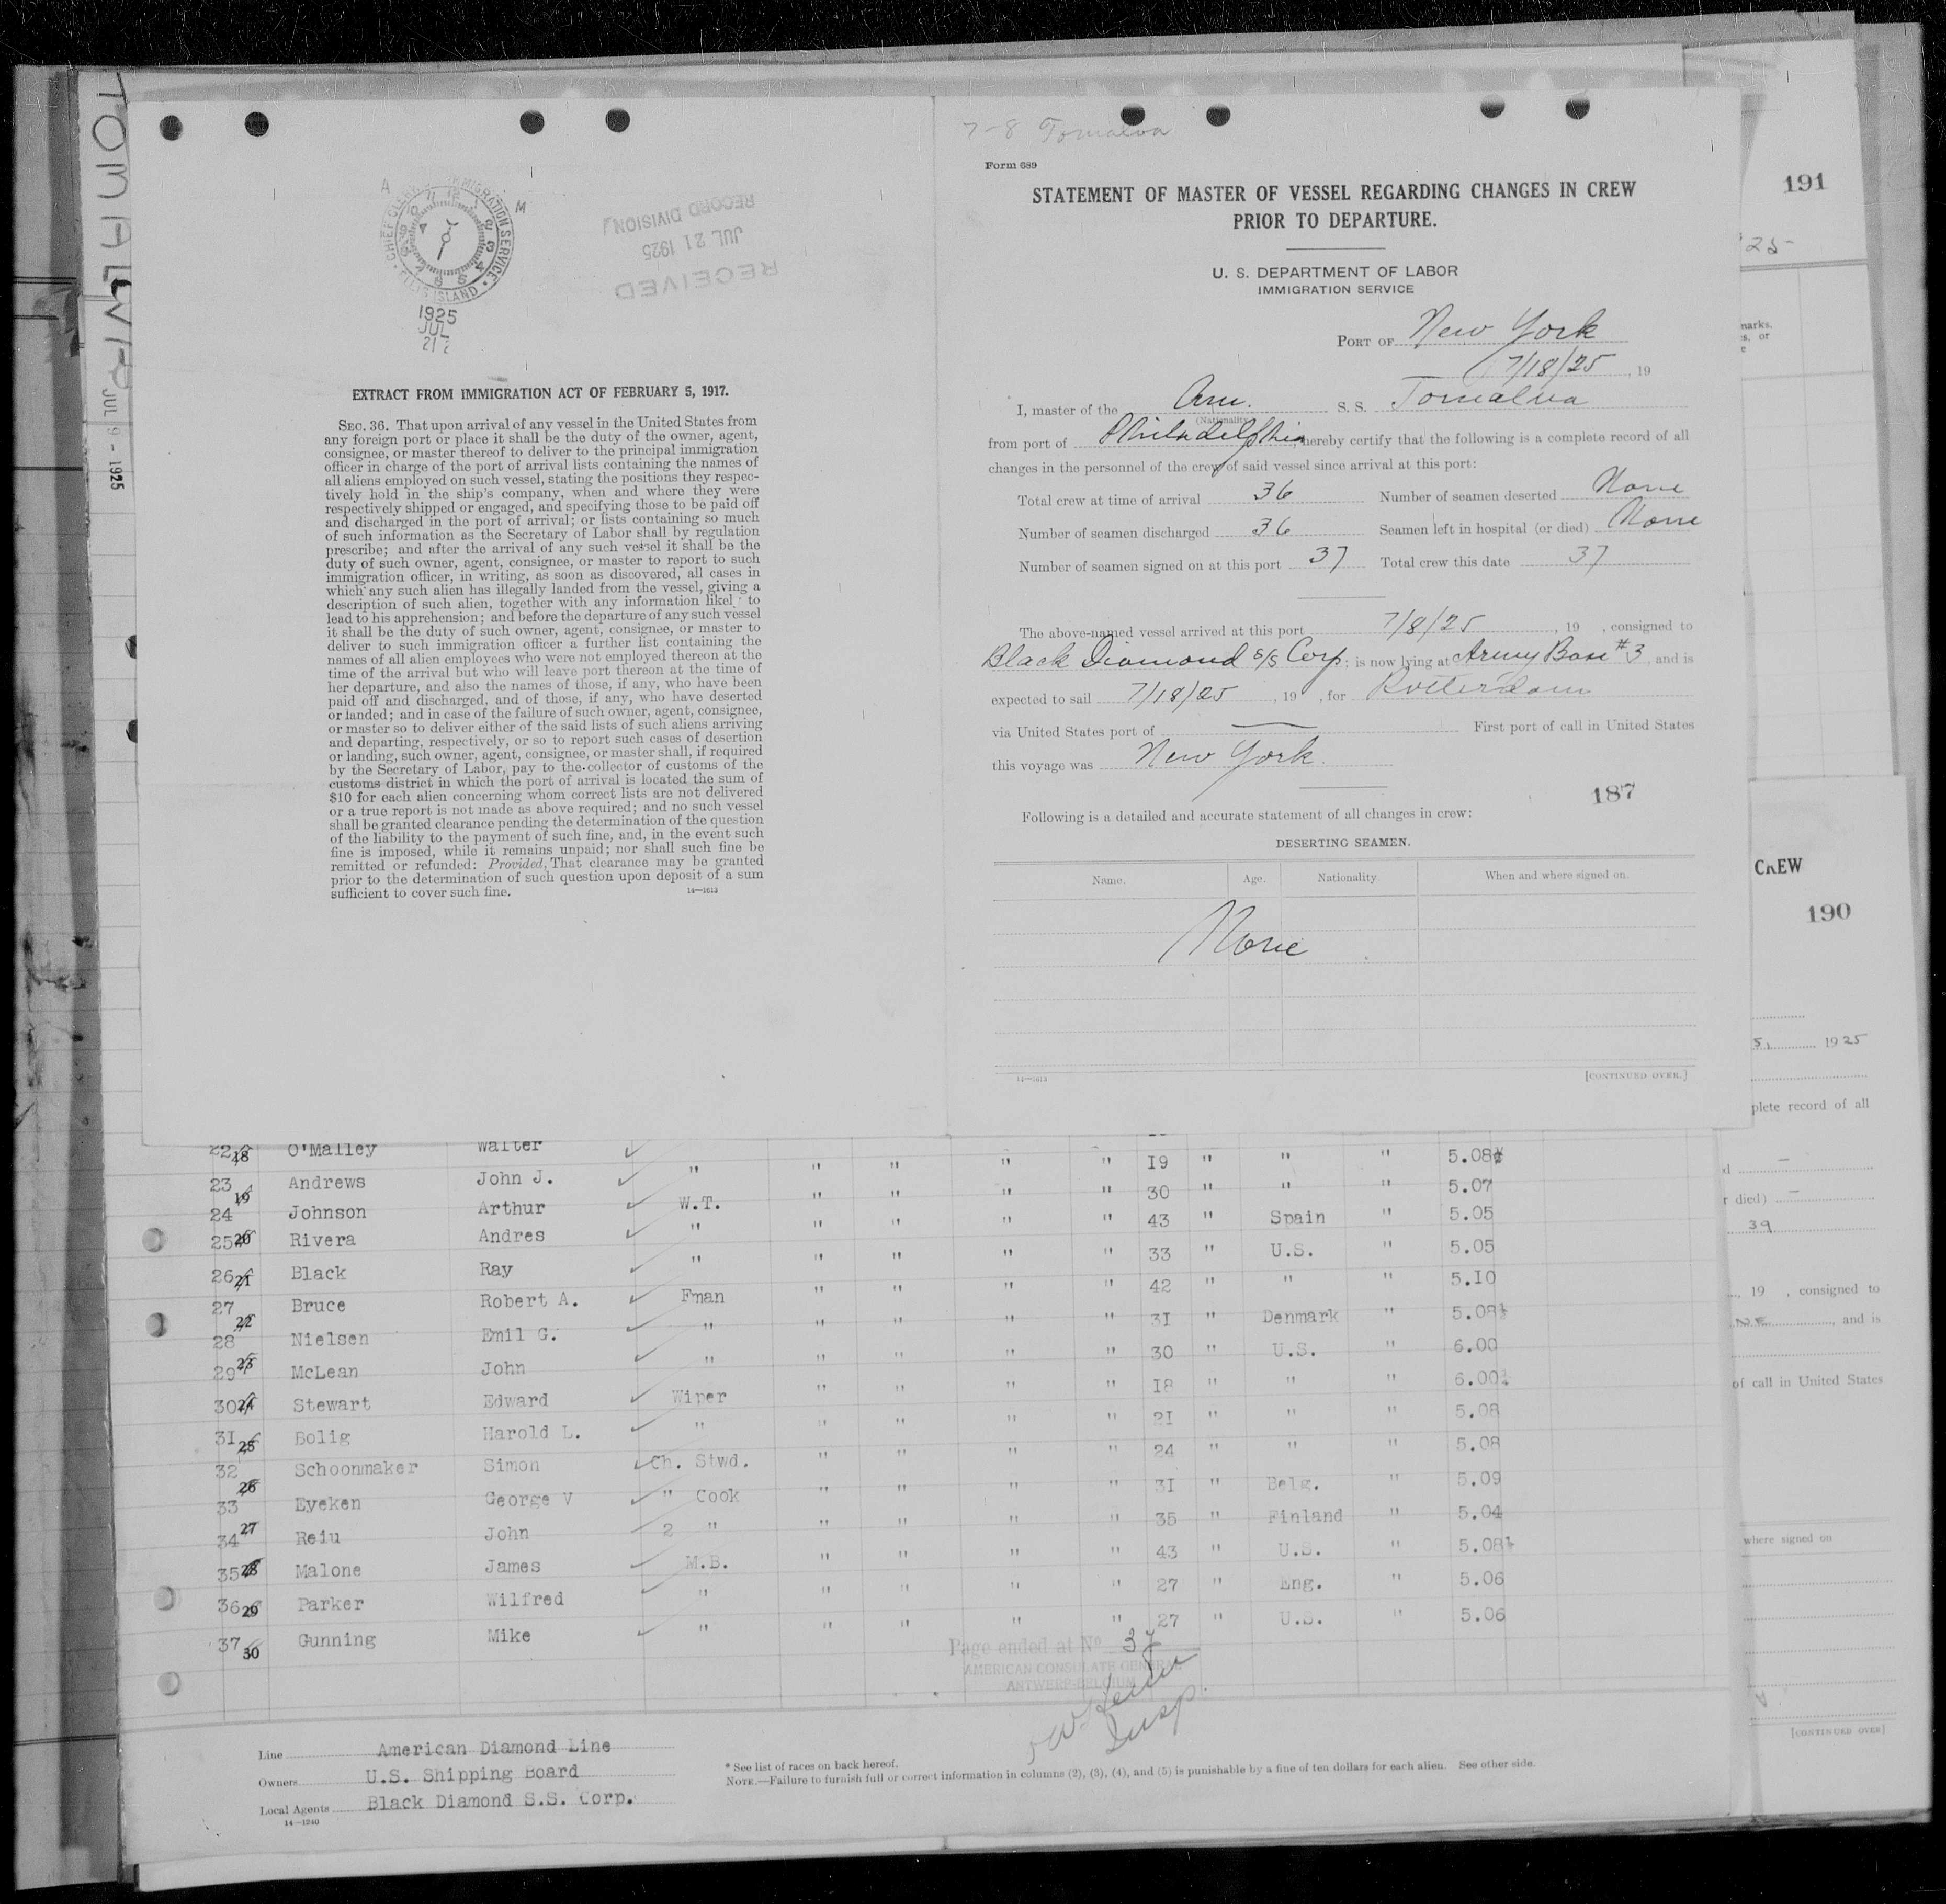 TOMALVA
JUL 9 - 1925
A
M
CHIEF CLERK
IMMIGRATION SERVICE
ELLIS ISLAND
1925
JUL
21
RECEIVED
JUL 21 1925
RECORD DIVISION
EXTRACT FROM IMMIGRATION ACT OF FEBRUARY 5, 1917.
SEC. 36. That upon arrival of any vessel in the United States from
any foreign port or place it shall be the duty of the owner, agent,
consignee, or master thereof to deliver to the principal immigration
officer in charge of the port of arrival lists containing the names of
all aliens employed on such vessel, stating the positions they respec-
tively hold in the ship's company, when and where they were
respectively shipped or engaged, and specifying those to be paid off
and discharged in the port of arrival; or lists containing so much
of such information as the Secretary of Labor shall by regulation
prescribe; and after the arrival of any such vessel it shall be the
duty of such owner, agent, consignee, or master to report to such
immigration officer, in writing, as soon as discovered, all cases in
which any such alien has illegally landed from the vessel, giving a
description of such alien, together with any information likel to
lead to his apprehension; and before the departure of any such vessel
it shall be the duty of such owner, agent, consignee, or master to
deliver to such immigration officer a further list containing the
names of all alien employees who were not employed thereon at the
time of the arrival but who will leave port thereon at the time of
her departure, and also the names of those, if any, who have been
paid off and discharged, and of those, if any, who have deserted
or landed; and in case of the failure of such owner, agent, consignee,
or master so to deliver either of the said lists of such aliens arriving
and departing, respectively, or so to report such cases of desertion
or landing, such owner, agent, consignee, or master shall, if required
by the Secretary of Labor, pay to the collector of customs of the
customs district in which the port of arrival is located the sum of
$10 for each alien concerning whom correct lists are not delivered
or a true report is not made as above required; and no such vessel
shall be granted clearance pending the determination of the question
of the liability to the payment of such fine, and, in the event such
fine is imposed, while it remains unpaid; nor shall such fine be
remitted or refunded: Provided, That clearance may be granted
prior to the determination of such question upon deposit of a sum
sufficient to cover such fine.
14—1613
7-8 Tomalva
Form 689
STATEMENT OF MASTER OF VESSEL REGARDING CHANGES IN CREW
PRIOR TO DEPARTURE.
U. S. DEPARTMENT OF LABOR
IMMIGRATION SERVICE
PORT OF New York
7/18/25, 19
I, master of the Am. S. S. Tomalva
(Nationality)
from port of Philadelphia, hereby certify that the following is a complete record of all
changes in the personnel of the crew of said vessel since arrival at this port:
Total crew at time of arrival 36 Number of seamen deserted None
Number of seamen discharged 36 Seamen left in hospital (or died) None
Number of seamen signed on at this port 37 Total crew this date 37
The above-named vessel arrived at this port 7/8/25, 19 , consigned to
Black Diamond S/S Corp; is now lying at Army Base #3, and is
expected to sail 7/18/25, 19 , for Rotterdam
via United States port of — First port of call in United States
this voyage was New York.
187
Following is a detailed and accurate statement of all changes in crew:
DESERTING SEAMEN.
Name. Age. Nationality. When and where signed on.
None
14—1613 [CONTINUED OVER.]
22 18 O'Malley Walter " " " " " 19 " " " 5.08½
23 Andrews John J. " " " " 30 " " " 5.07
24 19 Johnson Arthur W.T. " " " " 43 " Spain " 5.05
25 20 Rivera Andres " " " " " 33 " U.S. " 5.05
26 21 Black Ray " " " " " 42 " " " 5.10
27 Bruce Robert A. Fman " " " " 31 " Denmark " 5.08½
28 22 Nielsen Emil G. " " " " " 30 " U.S. " 6.00
29 23 McLean John " " " " " 18 " " " 6.00½
30 24 Stewart Edward Wiper " " " " 21 " " " 5.08
31 25 Bolig Harold L. " " " " " 24 " " " 5.08
32 Schoonmaker Simon Ch. Stwd. " " " " 31 " Belg. " 5.09
33 26 Eyeken George V " Cook " " " " 35 " Finland " 5.04
34 27 Reiu John 2 " " " " " 43 " U.S. " 5.08½
35 28 Malone James M.B. " " " " 27 " Eng. " 5.06
36 29 Parker Wilfred " " " " " 27 " U.S. " 5.06
37 30 Gunning Mike "
Page ended at No 37
AMERICAN CONSULATE GENERAL
ANTWERP-BELGIUM
Insp.
Line American Diamond Line
Owners U.S. Shipping Board
Local Agents Black Diamond S.S. Corp.
14—1240
* See list of races on back hereof.
NOTE.—Failure to furnish full or correct information in columns (2), (3), (4), and (5) is punishable by a fine of ten dollars for each alien. See other side.
191
25
CREW
190
1925
plete record of all
died)
39
, 19 , consigned to
N.E. , and is
of call in United States
where signed on
[CONTINUED OVER]